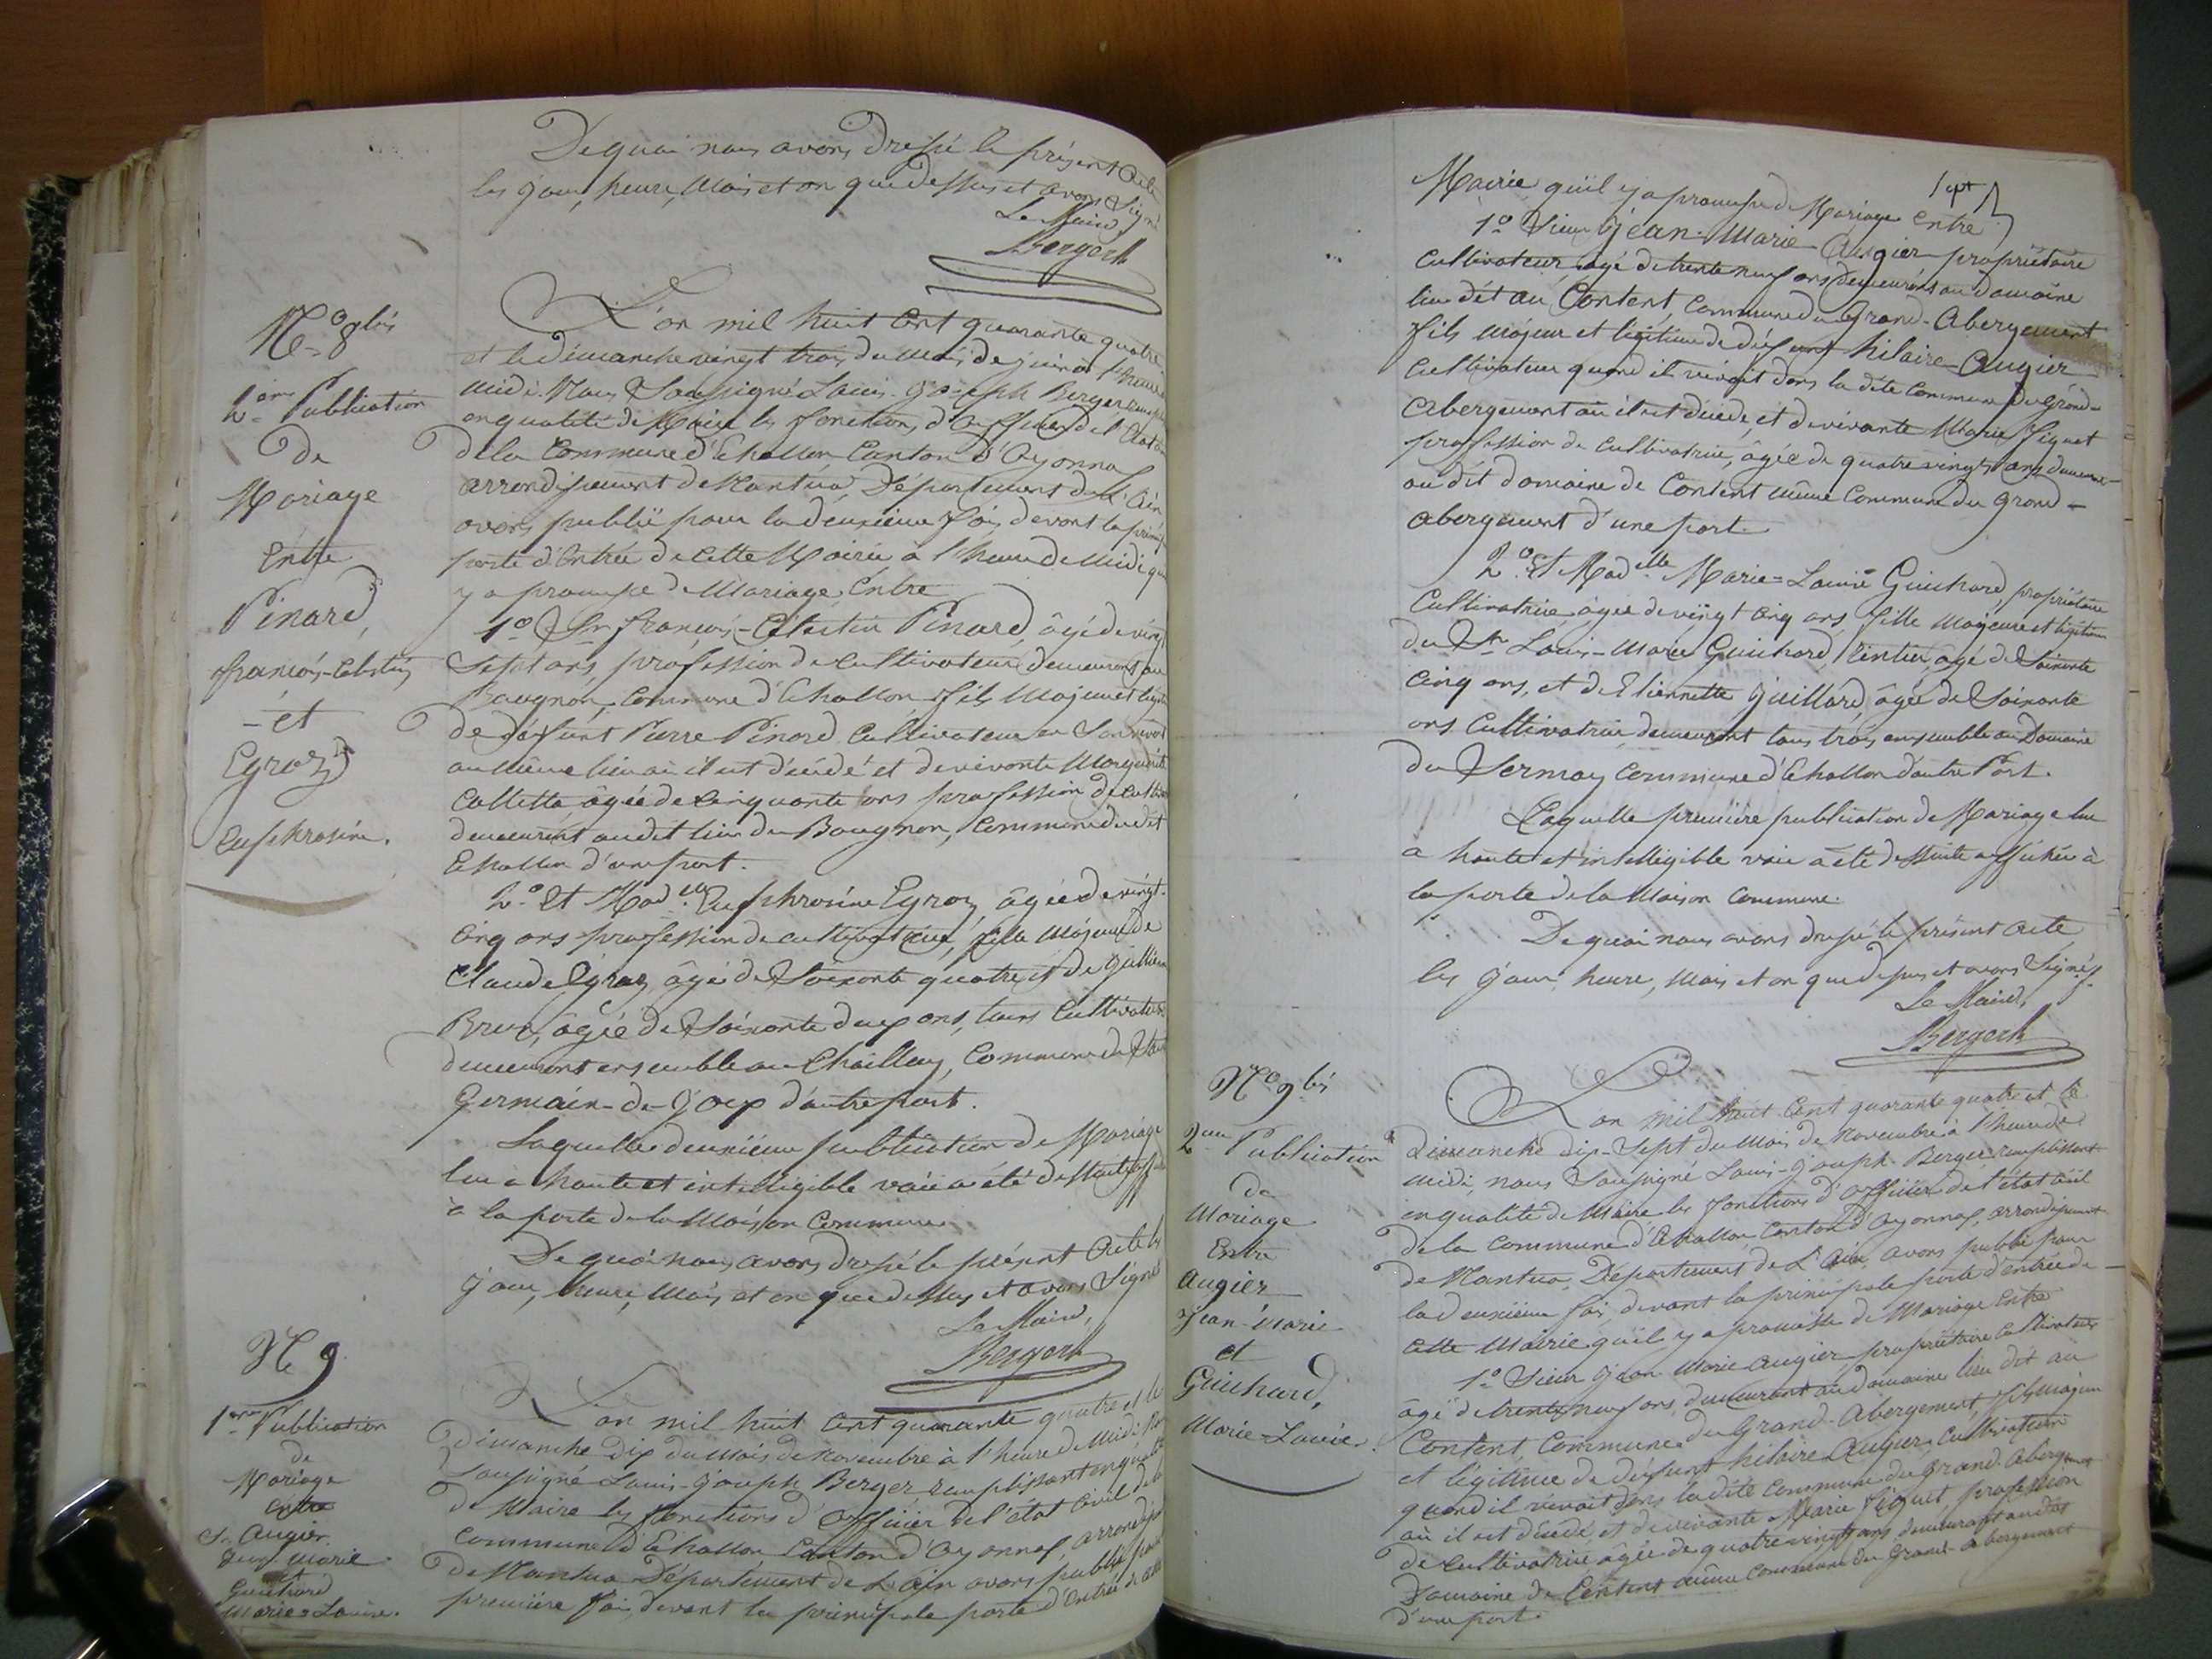 De quoi nous avons dressé le présent acte
les jour, heure, mois et an que dessus et avons signé
Le Maire,
Bergerh
No 8 bis
2.me Publication
De
Mariage
Entre
Pinard,
françois-Célestin
- et
Egroz
Euphrosine.
L'an mil huit cent quarante quatre
et le dimanche vingt trois du mois de juin à l'heure
midi. Nous Soussigné Louis-Joseph Berger
en qualité de Maire les fonctions d'officier de l'état
de la Commune d'Echallon Canton d'Oyonnax
arrondissement de Nantua, Département de l'Ain
avons publié pour la deuxième fois devant la
porte d'entrée de cette Mairie à l'heure de midi
y a promesse de Mariage Entre
1o Sr françois-Célestin Pinard, âgé de vingt
Sept ans, profession de cultivateur demeurant au
Bougnon, commune d'Echallon fils majeur et
de défunt Pierre Pinard Cultivateur en Son vivant
au même lieu où il est décédé et de vivante Marguerite
Collette âgée de cinquante ans profession de
demeurant audit lieu du Bougnon, Commune dudit
Echallon d'une part.
2o Et Mad.lle Euphrosine Egroz, âgée de vingt-
cinq ans profession de cultivatrice, fille majeure de
Claude Egroz âgé de Soixante quatre et de
âgée de Soixante deux ans, tous Cultivateurs
demeurant ensemble au Chaillay, Commune de
Germain-de-Joux d'autre part.
Laquelle deuxième publication de Mariage
lue à haute et intelligible voix a été de suite
à la porte de la Maison Commune.
De quoi nous avons dressé le présent acte les
jour, heure, mois et an que dessus et avons Signé
Le Maire,
Bergerh
No 9
1ère Publication
de
Mariage
entre
Sr. Augier
Jean-Marie
et
Guichard
Marie-Louise.
L'an mil huit cent quarante quatre et le
dimanche dix du mois de Novembre à l'heure de Midi
Soussigné Louis-Joseph Berger remplissant en qualité
de Maire les fonctions d'officier de l'état Civil de la
Commune d'Echallon Canton d'Oyonnax, arrondis
de Nantua Département de l'Ain avons publié pour
première fois, devant la principale porte d'entrée de cette
Mairie qu'il y a promesse de Mariage Entre
1o Sieur Jean-Marie Augier propriétaire
cultivateur, âgé de trente neuf ans demeurant au domaine
lieu dit au Content, commune du Grand-Abergement
fils majeur et légitime de défunt hilaire Augier
Cultivateur quand il vivait dans la dite commune du Grand-
Abergement où il est décédé, et de vivante Marie Figuet
profession de cultivatrice, âgée de quatre vingts ans
au dit domaine de Content même Commune du Grand-
abergement d'une part.
2o Et Mad.elle Marie-Louise Guichard, propriétaire
Cultivatrice, âgée de vingt cinq ans fille majeure et légitime
du Sr. Louis-Marie Guichard, rentier, âgé de Soixante
cinq ans, et de Etiennette Juillard, âgée de Soixante
ans cultivatrice demeurant tous trois ensemble au Domaine
du Sermay commune d'Echallon d'autre Part.
Laquelle première publication de Mariage lue
à haute et intelligible voix a été de suite affichée à
la porte de la Maison commune.
De quoi nous avons dressé le présent acte
les jour, heure, mois et an que dessus et avons Signé.
Le Maire,
Bergerh
No 9 bis
2.me Publication
de
Mariage
Entre
Augier
Jean-Marie
et
Guichard,
Marie-Louise.
L'an mil huit cent quarante quatre et le
Dimanche dix-Sept du mois de Novembre à l'heure de
midi, nous Soussigné Louis-Joseph Berger remplissant
en qualité de Maire les fonctions d'officier de l'état civil
de la commune d'Echallon Canton d'Oyonnax, arrondissement
de Nantua, Département de l'Ain, avons publié pour
la deuxième fois, devant la principale porte d'entrée de
cette Mairie qu'il y a promesse de Mariage Entre
1o Sieur Jean Marie Augier propriétaire Cultivateur
âgé de trente neuf ans, demeurant au domaine lieu dit au
Content, commune du Grand-Abergement, fils majeur
et légitime de défunt hilaire Augier, Cultivateur
quand il vivait dans ladite commune du Grand-Abergement
où il est décédé, et de vivante Marie Figuet, profession
de cultivatrice, âgée de quatre vingts ans demeurant audit
Domaine de Content même commune du Grand-abergement
d'une part.